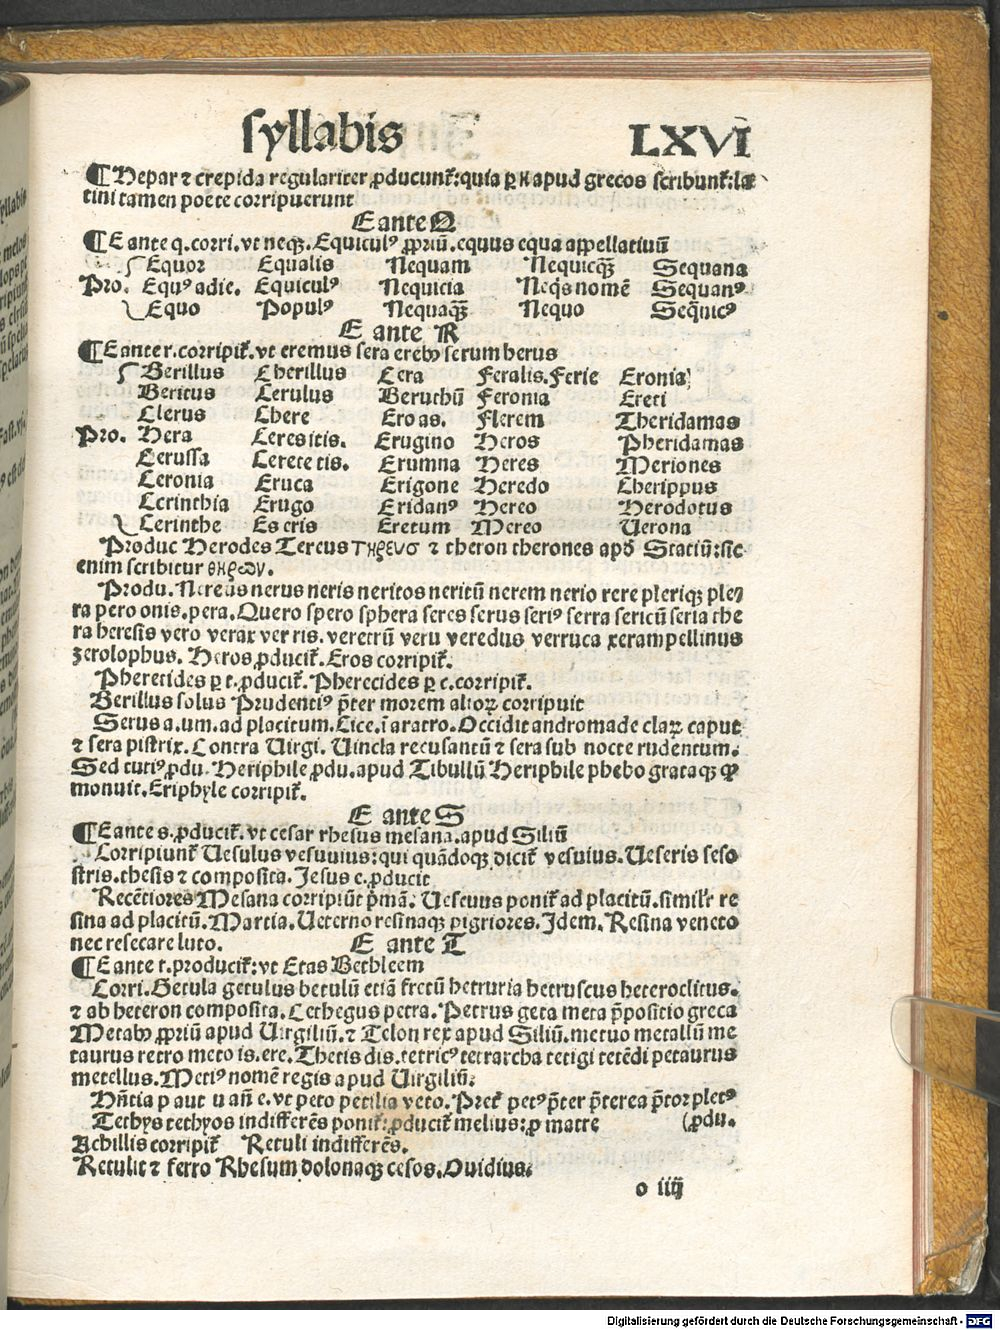 syllabis LXVI
¶ Hepar ⁊ crepida regulariter ꝓducunt᷑: quia ꝑ н apud grecos scribunt᷑: la
tini tamen poete corripuerunt
E ante Q
¶ E ante q. corri. vt neqꝫ. Equiculꝰ ꝓpriū. equus equa appellatiuū
Equor Equalis Nequam Nequicqꝫ̄ Sequana
Pro. Equꝰ adie. Equiculꝰ Nequicia Neq̄s nomē Sequanꝰ
Equo Populꝰ Nequaqꝫ̄ Nequo Seq̄nicꝰ
E ante R
¶ E ante r. corripit᷑. vt eremus sera erebꝰ serum herus
Berillus Cherillus Cera Feralis. Ferie Eronia
Bericus Cerulus Beruthū Feronia Ereti
Clerus Chere Ero as. Flerem Theridamas
Pro. Hera Ceres itis. Erugino Heros Pheridamas
Cerussa Cerete tis. Erumna Heres Meriones
Ceronia Eruca Erigone Heredo Cherippus
Cerinthia Erugo Eridanꝰ Hereo Herodotus
Cerinthe Es eris Eretum Mereo Uerona
Produc Herodes Tereus τηρευσ ⁊ theron therones apd̄ Statiū: sic
enim scribitur θηρων.
Produ. Nereus nerus neris neritos neritū nerem nerio rere pleriqꝫ ple⁊
ra pero onis. pera. Quero spero sphera seres serus seriꝰ serra sericū seria the
ra heresis vero verax ver ris. veretrū veru veredus verruca xerampellinus
zerolophus. Heros ꝓducit᷑. Eros corripit᷑.
Pherecides ꝑ t. ꝓducit᷑. Pherecides ꝑ c. corripit᷑.
Berillus solus Prudentiꝰ p̄ter morem alioꝝ corripuit
Serus a. um. ad placitum. Cice. ī aratro. Occidit andromade claꝝ caput
⁊ sera pistrix. Contra Uirgi. Uincla recusantū ⁊ sera sub nocte rudentum.
Sed tutiꝰ ꝓdu. Heriphile ꝓdu. apud Tibullū Heriphile phebo grataqꝫ qꝫ
monuit. Eriphyle corripit᷑.
E ante S
¶ E ante s. ꝓducit᷑. vt cesar rhesus mesana. apud Siliū
Corripiunt᷑ Uesulus vesuuius: qui quādoqꝫ dicit᷑ vesuius. Ueseris seso
stris. thesis ⁊ composita. Jesus e. ꝓducit
Recētiores Mesana corripiūt p̄mā. Uescuus ponit᷑ ad placitū. simil᷑r re
sina ad placitū. Martia. Ueterno resinaqꝫ pigriores. Idem. Resina veneto
nec resecare luto. E ante T
¶ E ante t. producit᷑: vt Etas Bethleem
Corri. Getula getulus betulū etiā fretū hetruria hetruscus heteroclitus.
⁊ ab heteron composita. Cethegus petra. Petrus geta meta p̄positio greca
Metabꝰ ꝓpriū apud Uirgiliū. ⁊ Telon rex apud Siliū. metuo metallū me
taurus retro meto is. ere. Thetis dis. tetricꝰ tetrarcha tetigi tetēdi petaurus
metellus. Metiꝰ nomē regis apud Uirgiliū.
Hn̄tia p aut u an̄ e. vt peto petilia veto. Pret᷑ petꝰ p̄ter p̄terea p̄tor pletꝰ
Tethys tethyos indifferēs ponit᷑: ꝓducit᷑ melius: ꝓ matre (ꝓdu.
Achillis corripit᷑ Retuli indifferēs.
Retulit ⁊ ferro Rhesum dolonaqꝫ cesos. Ouidius.
o iiij
Digitalisierung gefördert durch die Deutsche Forschungsgemeinschaft - DFG